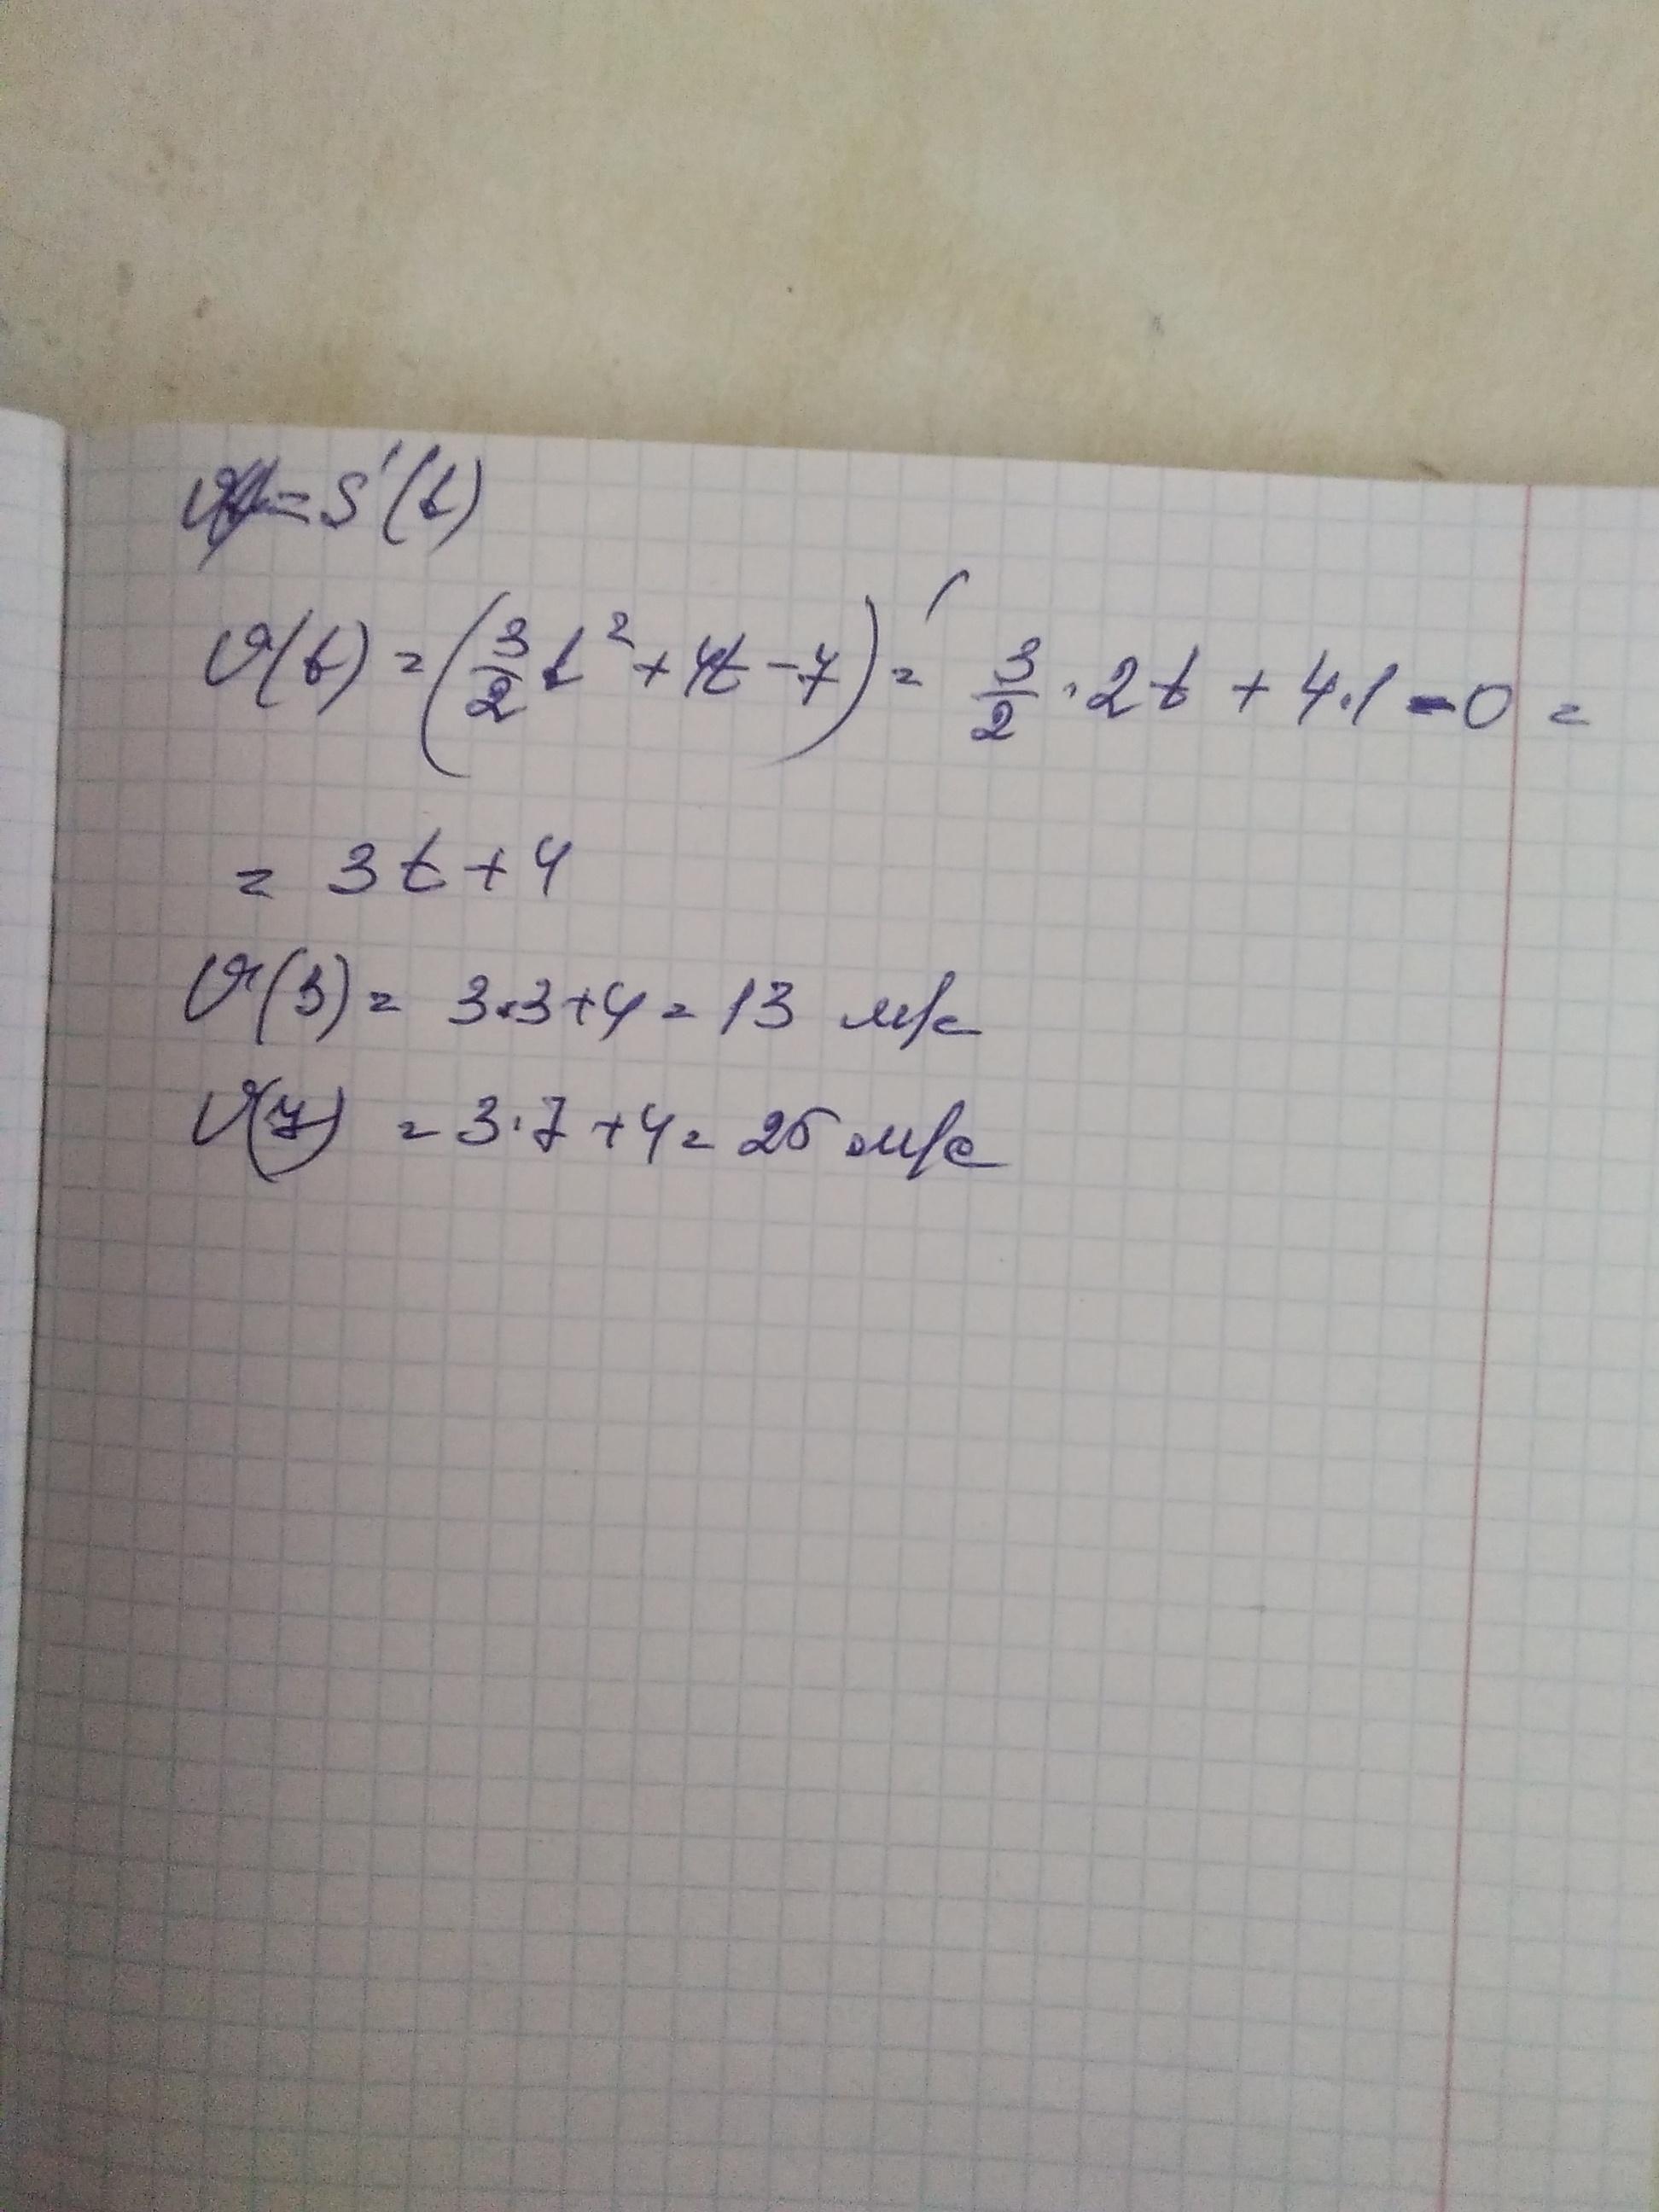 v = S'(t)
v(t) = (3/2 t² + 4t - 7)' = 3/2 · 2t + 4·1 - 0 =
= 3t + 4
v(3) = 3·3+4 = 13 м/с
v(7) = 3·7+4 = 25 м/с